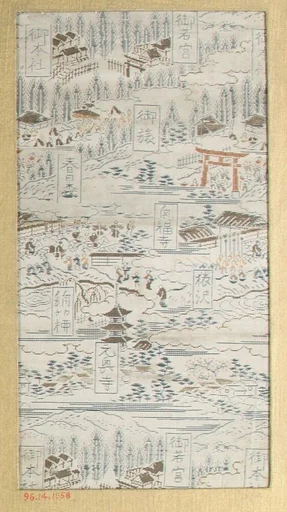 御若宮
御本社
御旅
春日野
興福寺
猿沢
元興寺
御若宮
御本社
御本
96.14.1658